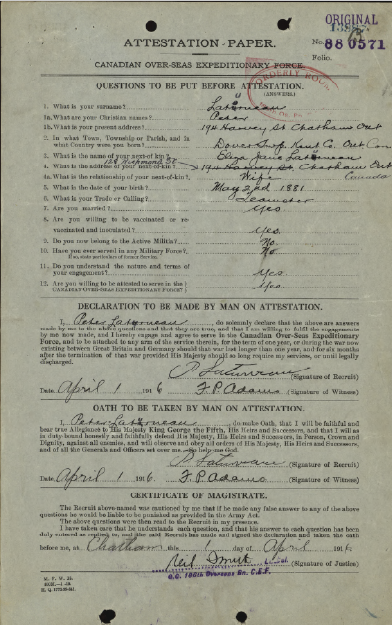 ORIGINAL
ATTESTATION PAPER.
No. 880571
CANADIAN OVER-SEAS EXPEDITIONARY FORCE.
Folio.
QUESTIONS TO BE PUT BEFORE ATTESTATION.
(ANSWERS)
1. What is your surname?
1a. What are your Christian names? Peter
1b. What is your present address? 194 Harvey St Chatham Ont
2. In what Town, Township or Parish, and in
what Country were you born? Dover Twp. Kent Co. Ont Can
3. What is the name of your next-of-kin? Eliza Jane
4. What is the address of your next-of-kin? Chatham Ont
Canada
4a. What is the relationship of your next-of-kin? Wife
5. What is the date of your birth? May 2nd 1881
6. What is your Trade or Calling? Teamster
7. Are you married? Yes
8. Are you willing to be vaccinated or re-
vaccinated and inoculated? Yes
9. Do you now belong to the Active Militia? No
10. Have you ever served in any Military Force? No
If so, state particulars of former Service.
11. Do you understand the nature and terms of
your engagement? Yes
12. Are you willing to be attested to serve in the
CANADIAN OVER-SEAS EXPEDITIONARY FORCE? Yes
DECLARATION TO BE MADE BY MAN ON ATTESTATION.
I, Peter, do solemnly declare that the above are answers
made by me to the above questions and that they are true, and that I am willing to fulfil the engagements
by me now made, and I hereby engage and agree to serve in the Canadian Over-Seas Expeditionary
Force, and to be attached to any arm of the service therein, for the term of one year, or during the war now
existing between Great Britain and Germany should that war last longer than one year, and for six months
after the termination of that war provided His Majesty should so long require my services, or until legally
discharged.
(Signature of Recruit)
Date April 1 1916 F.P. Adams (Signature of Witness)
OATH TO BE TAKEN BY MAN ON ATTESTATION.
I, Peter, do make Oath, that I will be faithful and
bear true Allegiance to His Majesty King George the Fifth, His Heirs and Successors, and that I will as
in duty bound honestly and faithfully defend His Majesty, His Heirs and Successors, in Person, Crown and
Dignity, against all enemies, and will observe and obey all orders of His Majesty, His Heirs and Successors,
and of all the Generals and Officers set over me. So help me God.
(Signature of Recruit)
Date April 1 1916 F.P. Adams (Signature of Witness)
CERTIFICATE OF MAGISTRATE.
The Recruit above-named was cautioned by me that if he made any false answer to any of the above
questions he would be liable to be punished as provided in the Army Act.
The above questions were then read to the Recruit in my presence.
I have taken care that he understands each question, and that his answer to each question has been
duly entered as replied to, and the said Recruit has made and signed the declaration and taken the oath
before me, at Chatham this 1 day of April 1916
Neil Smith (Signature of Justice)
O.C. 186th Overseas Bn. C.E.F.
M. F. W. 23.